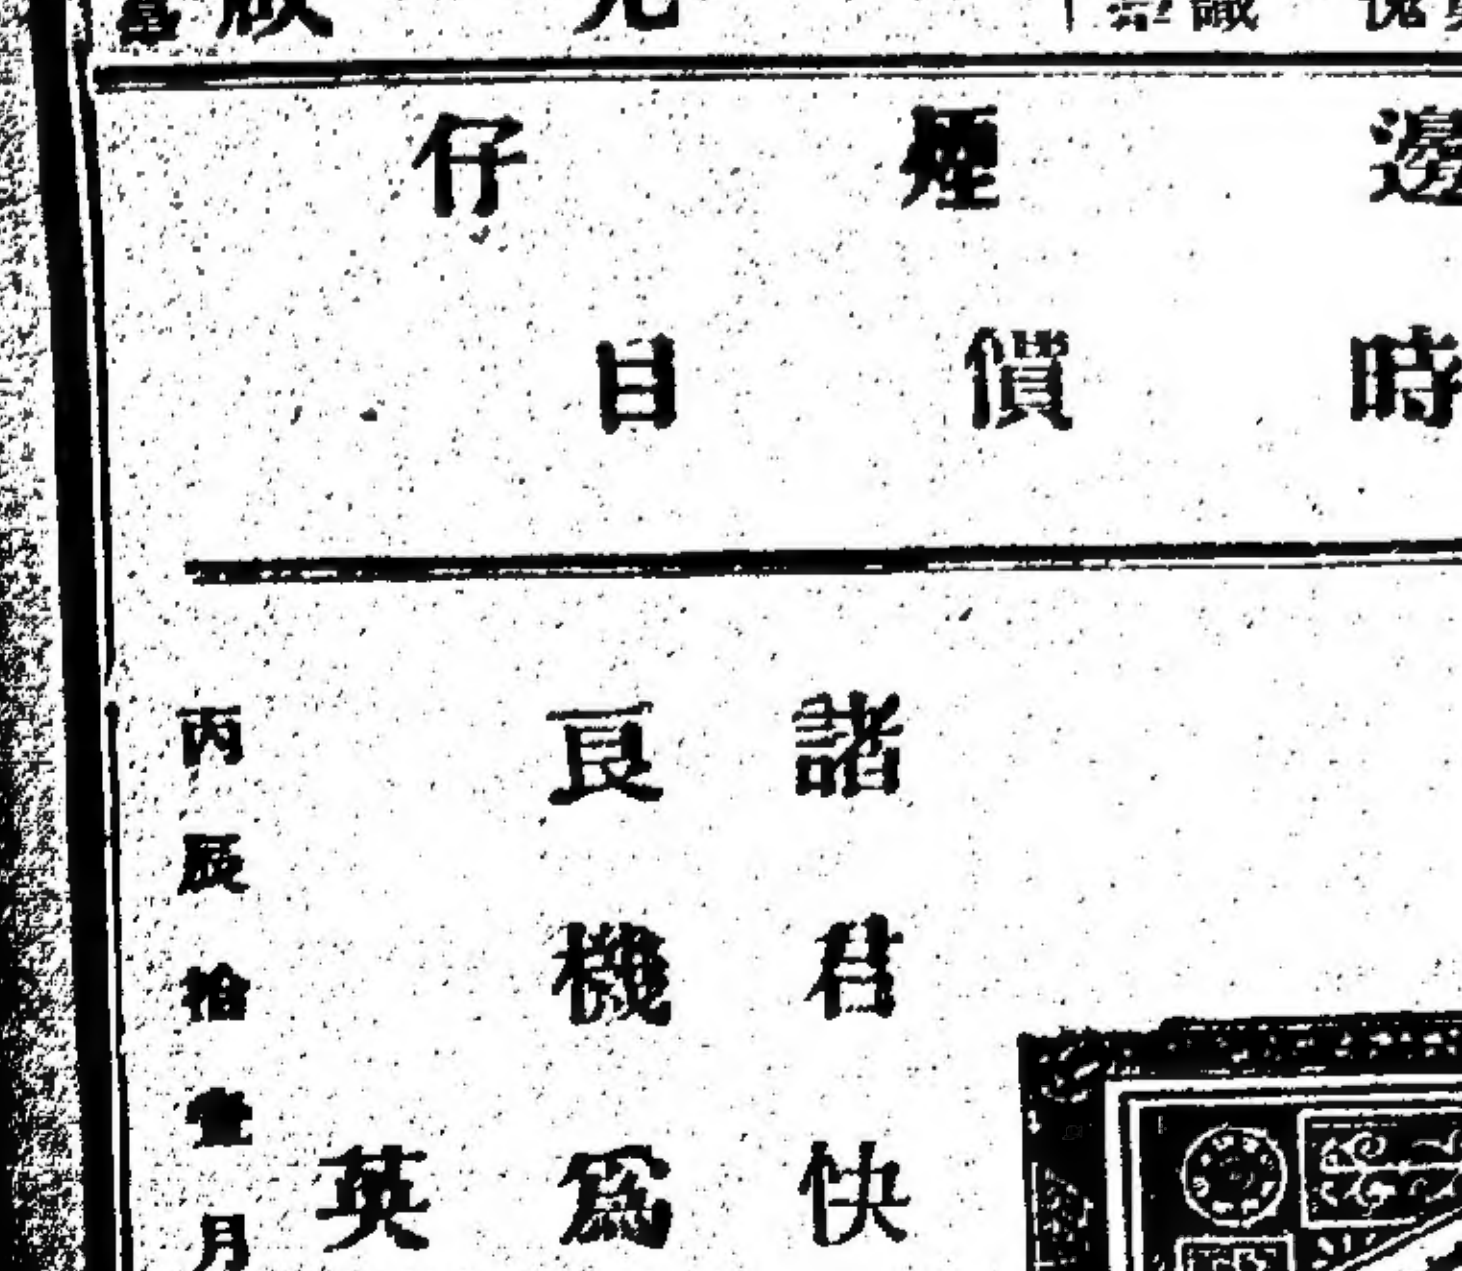 邊煙仔
時價目
諸君快
良機爲
英
丙辰拾壹月